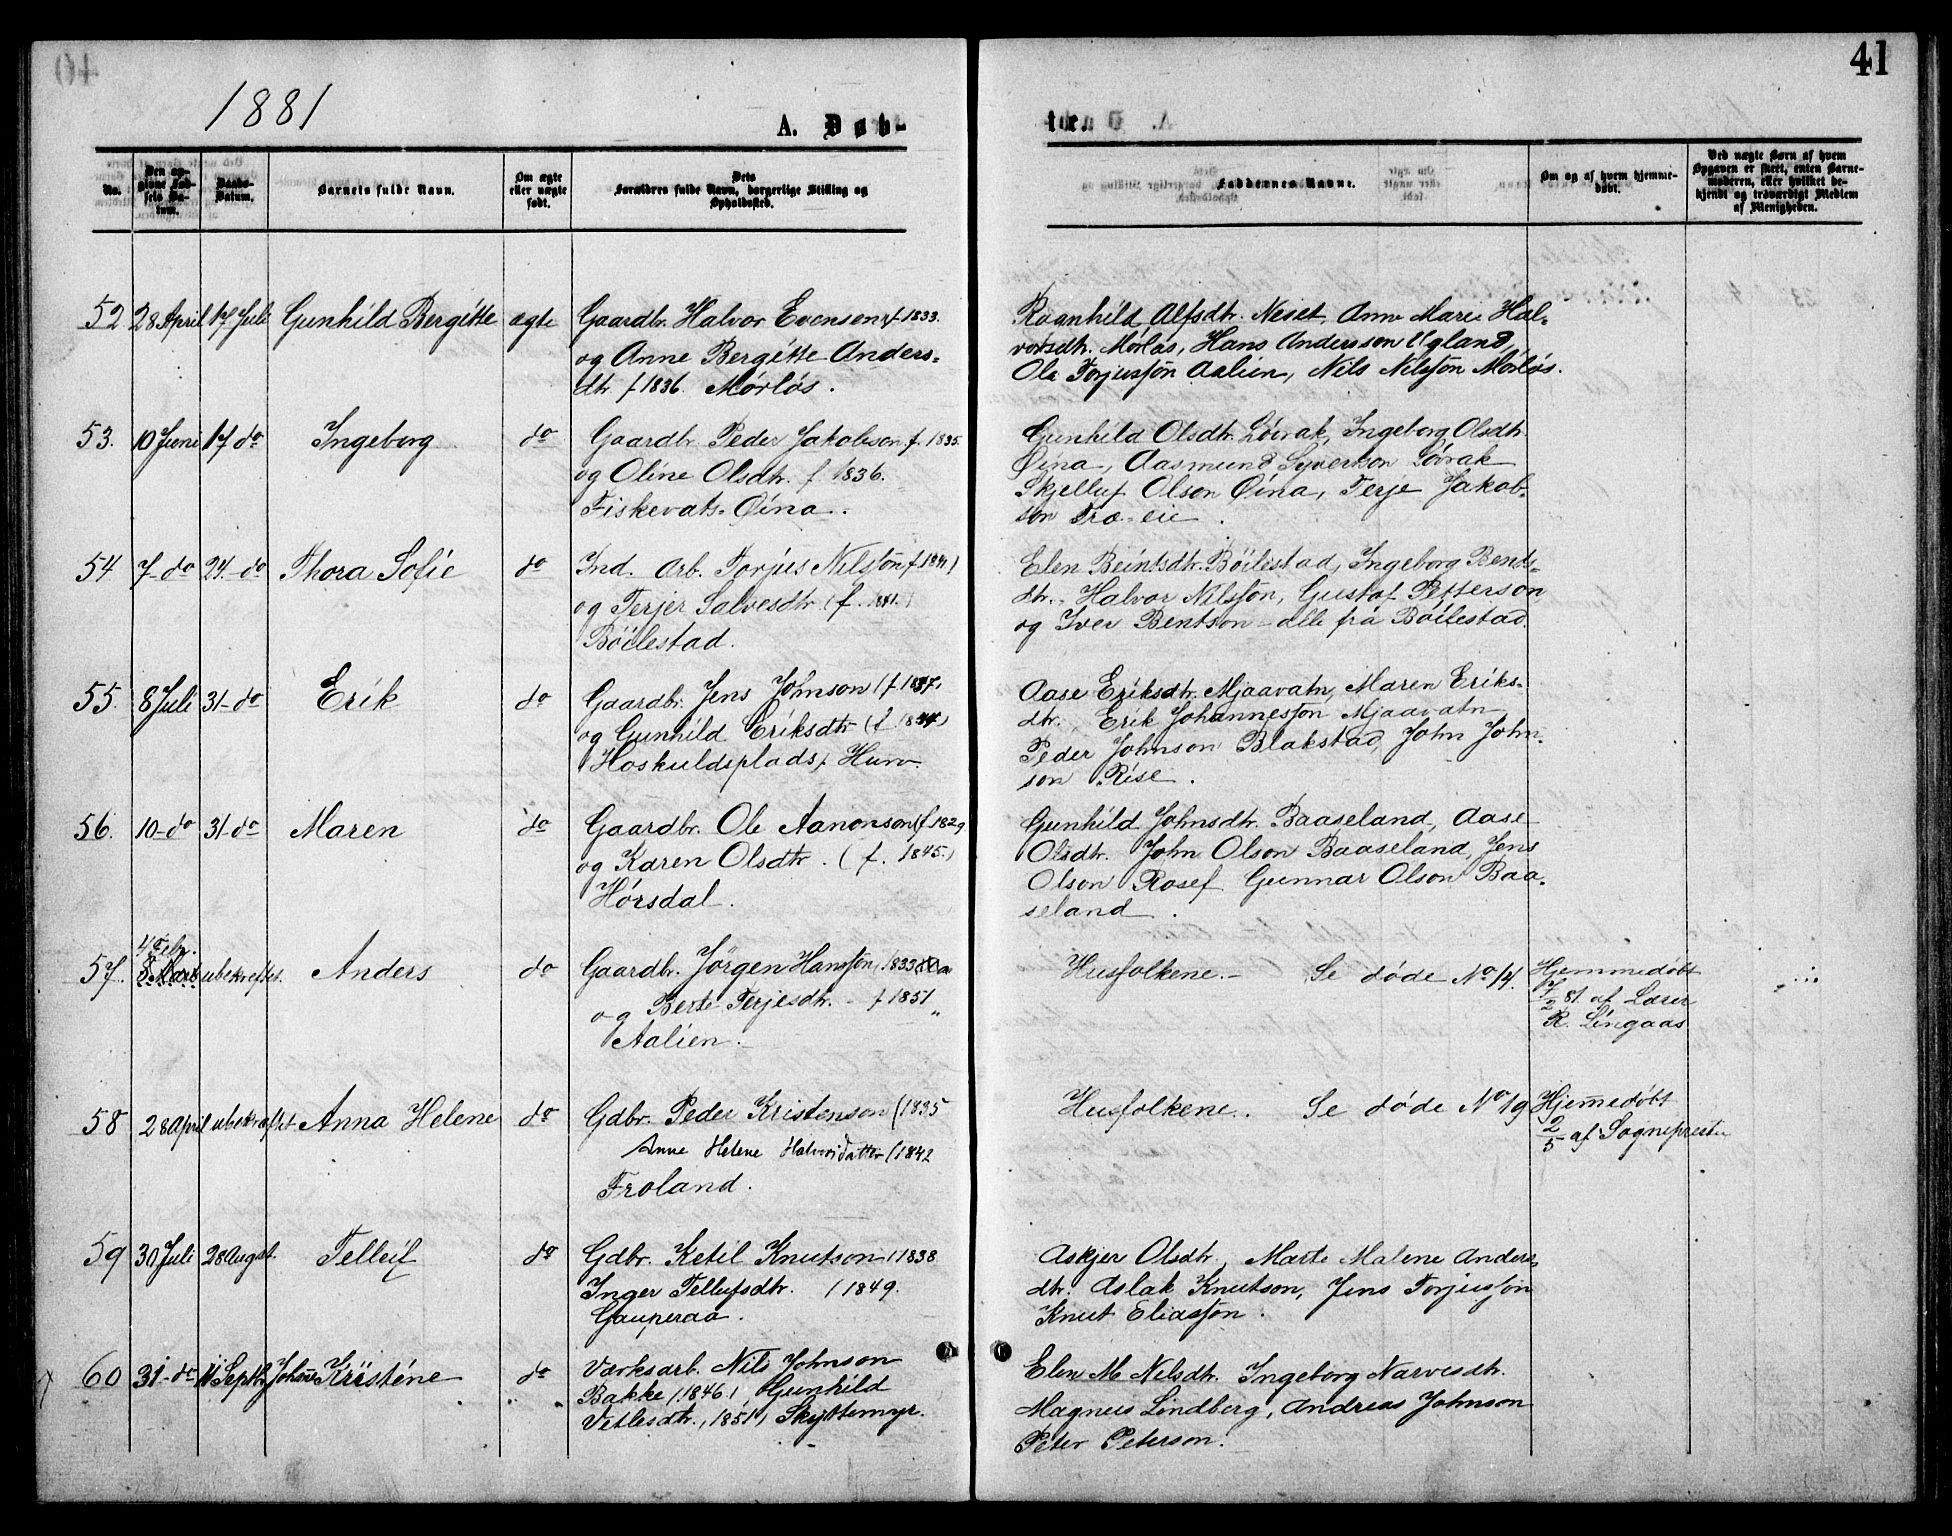 1881
A. Døb-
No.
Den opgivne Fødsels Datum.
Daabs-Datum.
Barnets fulde Navn.
Om ægte eller uægte født.
Dets Forældres fulde Navn, borgerlige Stilling og Opholdssted.
52 28 April 17 Juli Gunhild Bergitte ægte Gaardbr. Halvor Evensen f. 1833.
og Anne Bergitte Anders-
dtr f 1836. Mørløs.
53. 10 Juni 17 do Ingeborg do Gaardbr. Peder Jakobson f. 1835.
og Oline Olsdtr. f 1836.
Fiskevats-Øina.
54 7-do 24-do Thora Sofie do Ind. Arb. Torjus Nilsson f 1841)
og Terjer Salvesdtr (f. 1841.)
Böilestad.
55. 8 Juli 31-do Erik do Gaardbr. Jens Johnson (f 1837.
og Gunhild Eriksdtr (f 1844)
Hoskuldsplads, Hurv.
56. 10-do 31-do Maren do Gaardbr. Ole Aanonson (f. 1829.
og Karen Olsdtr. (f. 1845.)
Hørsdal.
4 Feby.
57. ubekræftet. Anders do Gaardbr. Jörgen Hansson, 1833
og Berte Terjesdtr. - f 1851 "
Aalien.
58 28 April ubekræftet Anna Helene do Gdbr. Peder Kristenson (1835
Anne Helene Halvorsdatter (1842
Froland.
59 30 Juli 28 Augst. Telleif do Gdbr. Ketil Knutson (1838
Inger Tellufsdtr. (1849.
Gauperaa.
60 31-do 11 Septbr Johanne Kristéne do Værksarb. Nils Johnson
Bakke (1846), Gunhild
Vetlesdtr., 1851, Skyttemyr.
41
te.
Faddernes Navne.
Om og af hvem hjemmedøbt.
Ved uægte Børn af hvem Opgaven er skeet, enten Barnemoderen, eller hvilket bekjendt og troværdigt Medlem af Menigheden.
Ragnhild Alfsdtr. Neset, Anne Marie Hal-
vorsdtr. Mørløs, Hans Andersson Ugland,
Ole Torjusson Aalien, Nils Nilsson Mørløs.
Gunhild Olsdtr. Løvrak, Ingeborg Olsdtr.
Øina, Aasmund Syvertson Løvrak
Skjelluf Olson Øina, Terje Jakob-
son Træ-eie.
Elen Beintsdtr. Böilestad, Ingeborg Bents-
dtr., Halvor Nilsson, Gustaf Petterson
og Iver Bentson - alle fra Böilestad.
Aase Eriksdtr. Mjaavatn, Maren Eriks-
dtr., Erik Johannesson Mjaavatn,
Peder Johnson Blakstad, John John-
son Rise.
Gunhild Johnsdtr. Baaseland, Aase
Olsdtr. John Olson Baaseland, Jens
Olson Rosef Gunnar Olson Baa-
seland.
Husfolkene. - Se døde No 14. Hjemmedøbt
7/2 81. af Lærer
R. Lingaas
Husfolkene. Se døde No 19 Hjemmedøbt
2/5 af Sognepresten
Askjer Olsdtr., Marte Malene Anders-
dtr. Aslak Knutson, Jens Torjusson
Knut Eliasson.
Elen M Nilsdtr. Ingeborg Narvesdtr.
Magnus Lindberg, Andreas Johnson
Peter Peterson.